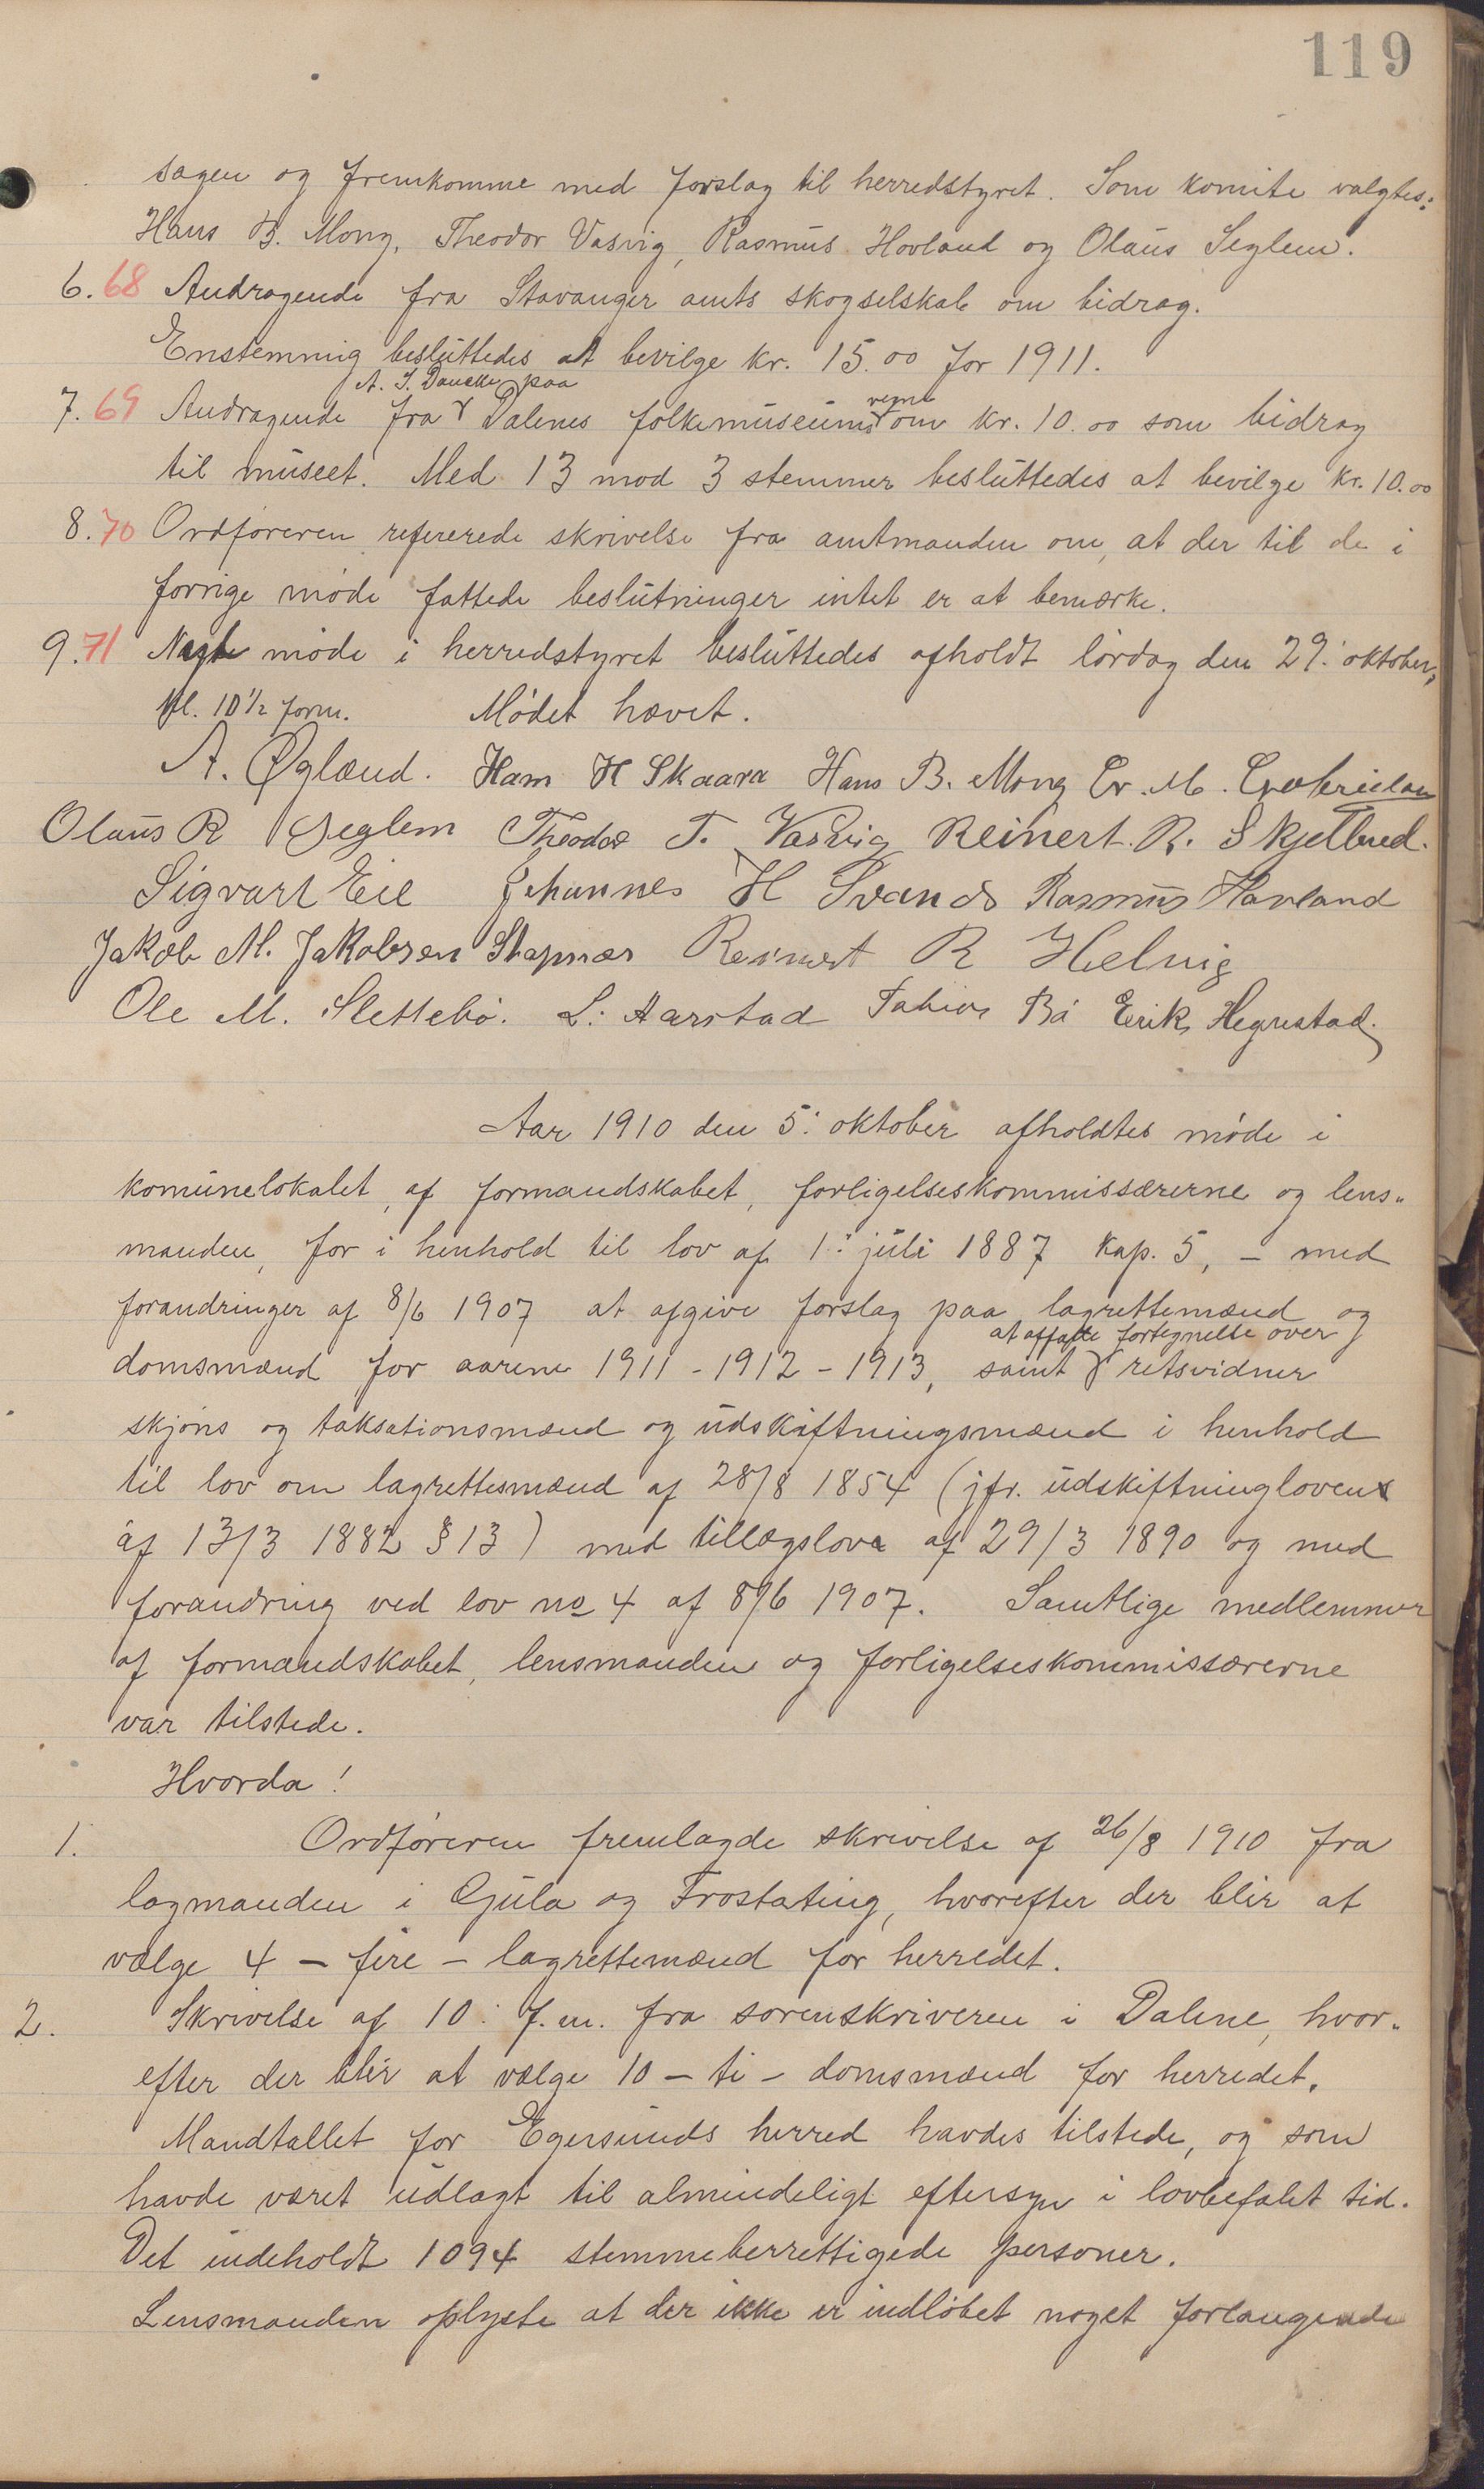 119
sagen og fremkomme med forslag til herredstyret. Som komite valgtes:
Hans B. Mong, Theodor Vasvig, Rasmus Hovland og Olaus Seglem.
6. 68 Andragende fra Stavanger amts skogselskab om bidrag.
Enstemmig besluttedes at bevilge kr. 15.00 for 1911.
A. J. Danckel paa
vegne
7. 69 Andragende fra Dalenes folkemuseums om kr. 10.00 som bidrag
til museet. Med 13 mod 3 stemmer besluttedes at bevilge kr. 10.00
8. 70 Ordføreren refererede skrivelse fra amtmanden om, at der til de i
forrige møde fattede beslutninger intet er at bemærke.
9. 71 Næste møde i herredstyret besluttedes afholdt lørdag den 29. oktober,
kl. 10½ form. Mødet hævet.
A. Øglænd. Hans H Skaara Hans B. Mong Er. M. Gabrielsen
Olaus R Seglem Theodor T. Vasvig Reinert. R. Skjelbred.
Sigvart Eie Johannes H Svanes Rasmus Havland
Jakob M. Jakobsen Stapnæs Reinert R Helvig
Ole M. Slettebø. L. Aarstad Tobias Bø Erik Hegrestad.
Aar 1910 den 5. oktober afholdtes møde i
komunelokalet, af formandskabet, forligelseskommissærerne og lens-
manden, for i henhold til lov af 1. juli 1887 kap. 5, – med
forandringer af 8/6 1907 at afgive forslag paa lagrettemænd og
at affatte fortegnelse over
domsmænd for aarene 1911 - 1912 - 1913, samt retsvidner
skjøns og taksationsmænd og udskiftningsmænd i henhold
til lov om lagrettesmænd af 28/8 1854 (jfr. udskiftninglovens
af 13/3 1882 § 13) med tillægslove af 29/3 1890 og med
forandring ved lov no 4 af 8/6 1907. Samtlige medlemmer
af formandskabet, lensmanden og forligelseskommissærerne
var tilstede.
Hvorda!
1. Ordføreren fremlagde skrivelse af 26/8 1910 fra
lagmanden i Gula og Frostating, hvorefter der blir at
vælge 4 – fire – lagrettemænd for herredet.
2. Skrivelse af 10. f.m. fra sorenskriveren i Dalene, hvor-
efter der blir at vælge 10 – ti – domsmænd for herredet.
Mandtallet for Egersunds herred havdes tilstede, og som
havde været udlagt til almindeligt eftersyn i lovbefalet tid.
Det indeholdt 1094 stemmeberrettigede personer.
Lensmanden oplyste at der ikke er indløbet noget forlangende